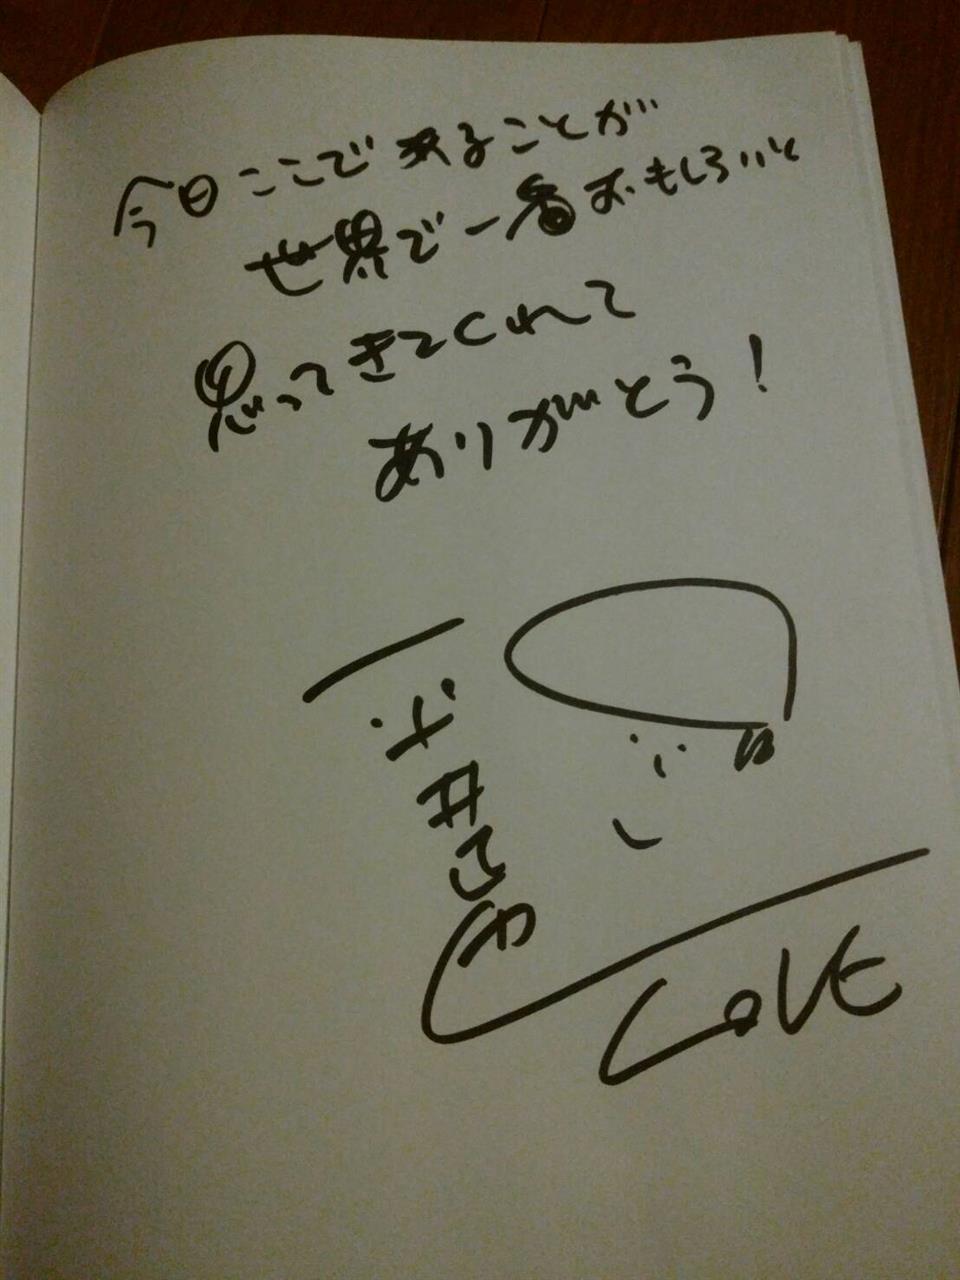 今日ここであることが
世界で一番おもしろいと
思ってきてくれて
ありがとう！
LOVE